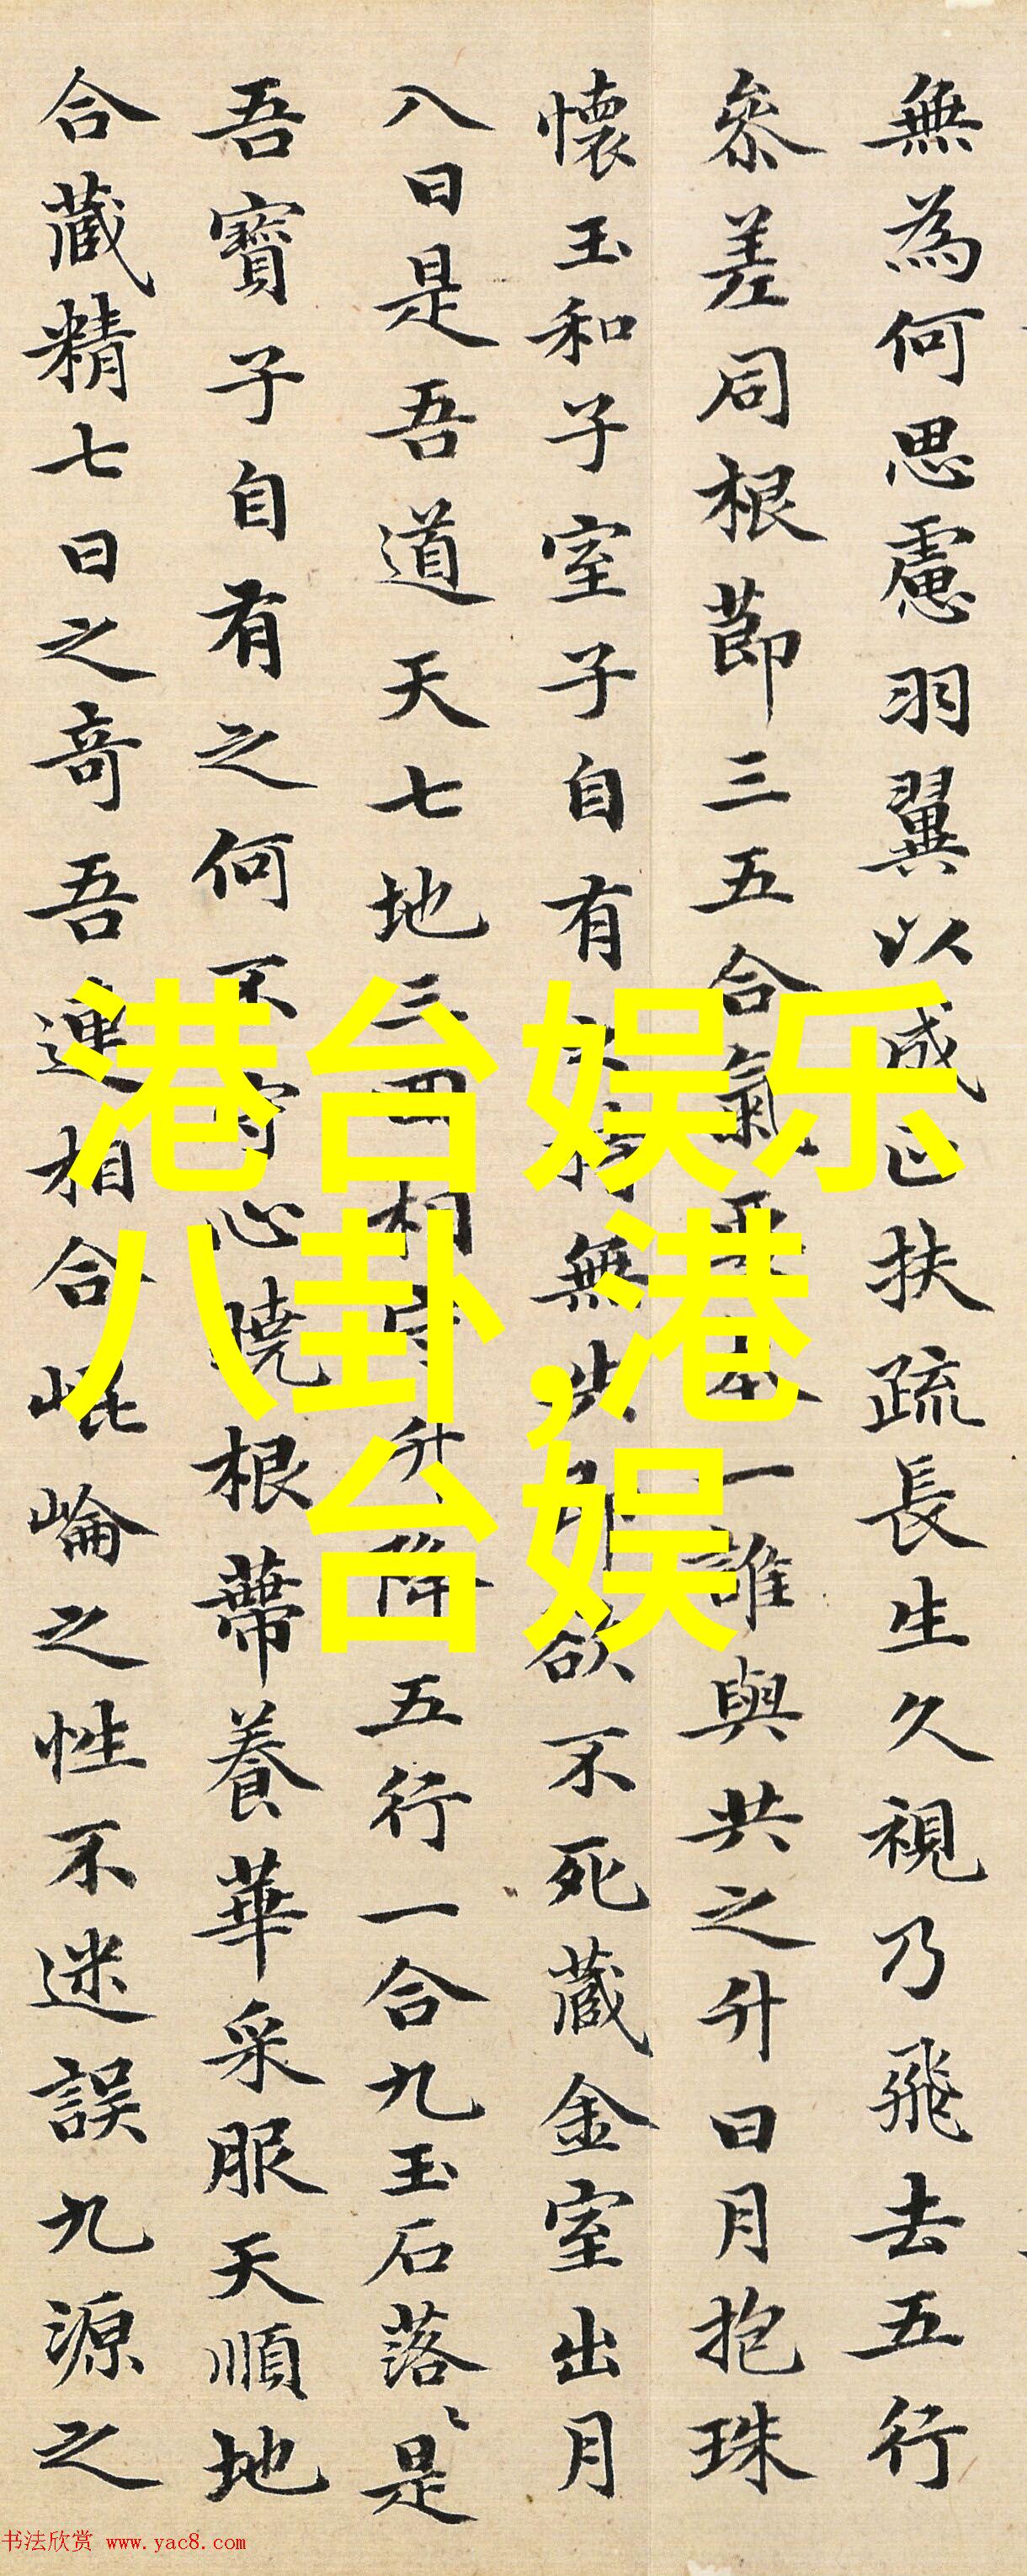 無為何思慮羽翼以成正扶疏長生久視乃飛去五行
參差同根節三五合氣要本一誰與共之升日月抱珠
懷玉和子室子自有之持無失即欲不死藏金室出月
入日是吾道天七地三回相守升降五行一合九玉石落〻是
吾寶子自有之何不守心曉根蔕養華采服天順地
合藏精七日之奇吾連相合崐崘之性不迷誤九源之
港台娱乐
八卦,港
台娱
书法欣赏 www.yac8.com